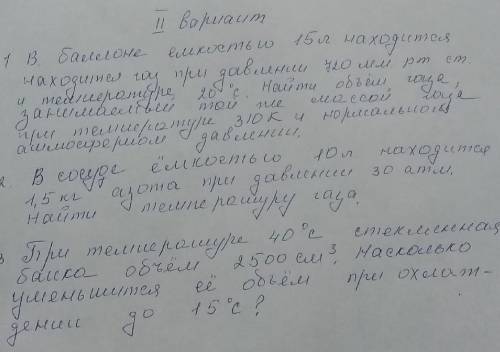 II вариант
1 В баллоне ёмкостью 15л находится
находится газ при давлении 720 мм рт ст.
и температуре 20°С. Найти объём газа,
занимаемый той же массой газа
при температуре 310 К и нормальном
атмосферном давлении.
2. В сосуде ёмкостью 10л находится
1,5 кг азота при давлении 30 атм.
Найти температуру газа.
3 При температуре 40°С стеклянная
банка объём 2500 см³. Насколько
уменьшится её объём при охлаж-
дении до 15°С?